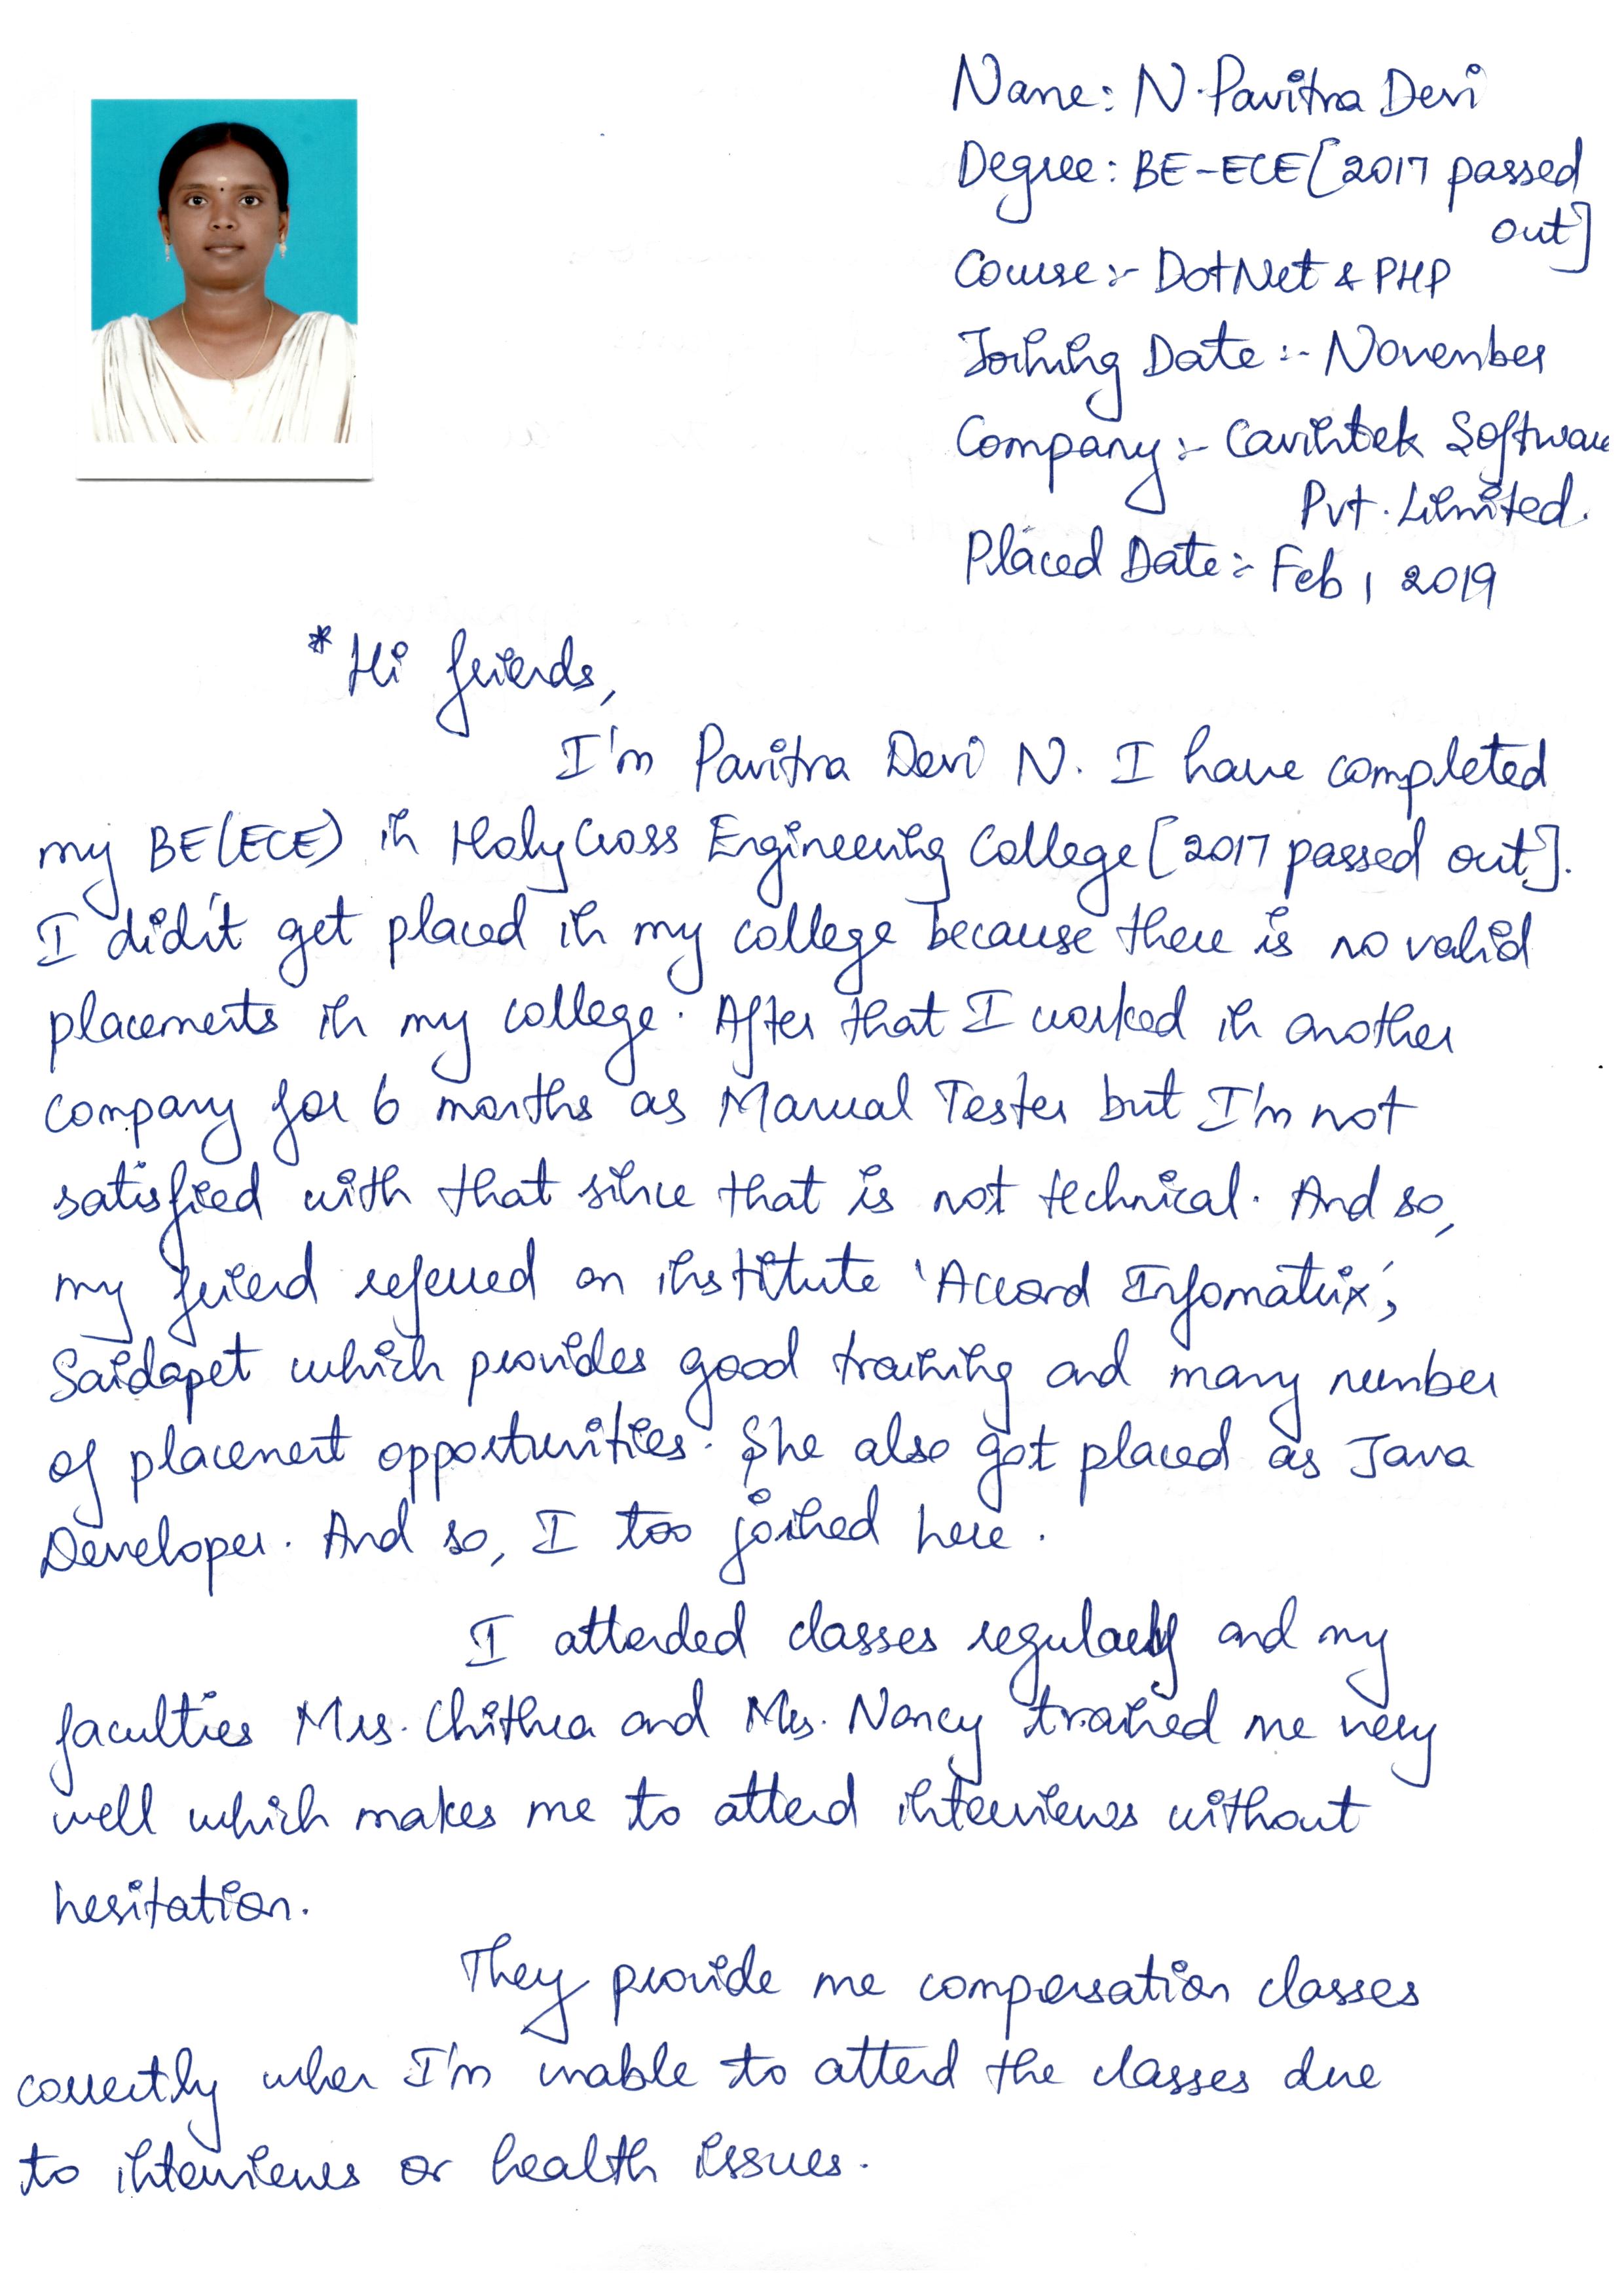 Name: N. Pavitra Devi
Degree: BE-ECE [2017 passed
out]
Course:- DotNet & PHP
Joining Date:- November
Company:- Cavintek Software
Pvt. Limited.
Placed Date:- Feb, 2019
*Hi friends,
I'm Pavitra Devi N. I have completed
my BE(ECE) in HolyCross Engineering College [2017 passed out].
I did'nt get placed in my college because there is no valid
placements in my college. After that I worked in another
company for 6 months as Manual Tester but I'm not
satisfied with that since that is not technical. And so,
my friend referred an institute 'Accord Infomatrix',
Saidapet which provides good training and many number
of placement opportunities. She also got placed as Java
Developer. And so, I too joined here.
I attended classes regularly and my
faculties Mrs. Chithra and Mrs. Nancy trained me very
well which makes me to attend interviews without
hesitation.
They provide me compensation classes
correctly when I'm unable to attend the classes due
to interviews or health issues.